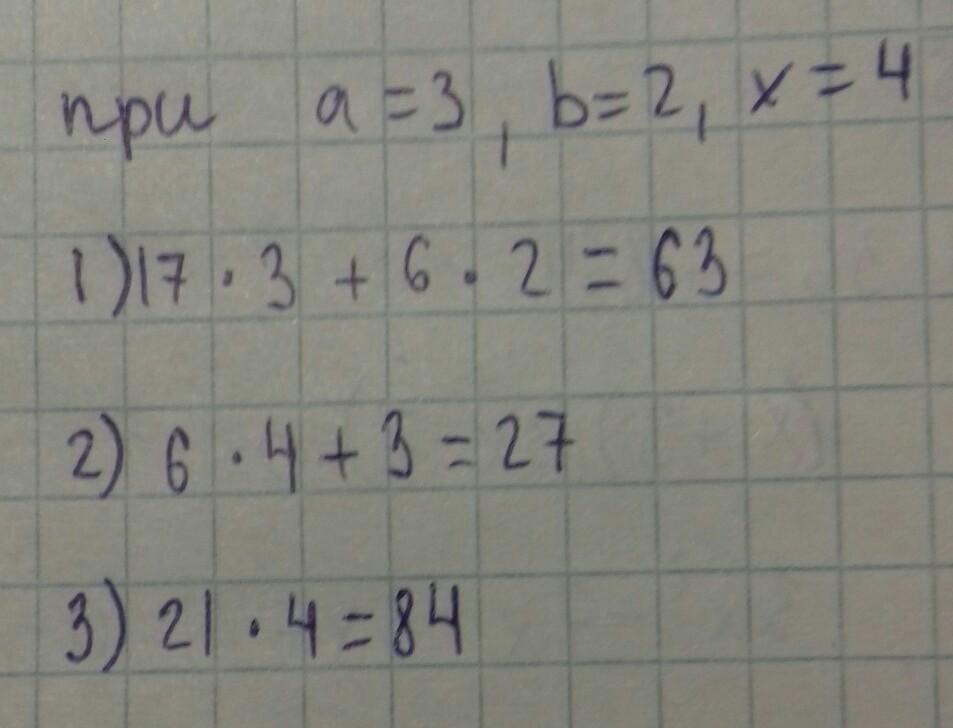 при a = 3, b = 2, x = 4
1) 17 · 3 + 6 · 2 = 63
2) 6 · 4 + 3 = 27
3) 21 · 4 = 84